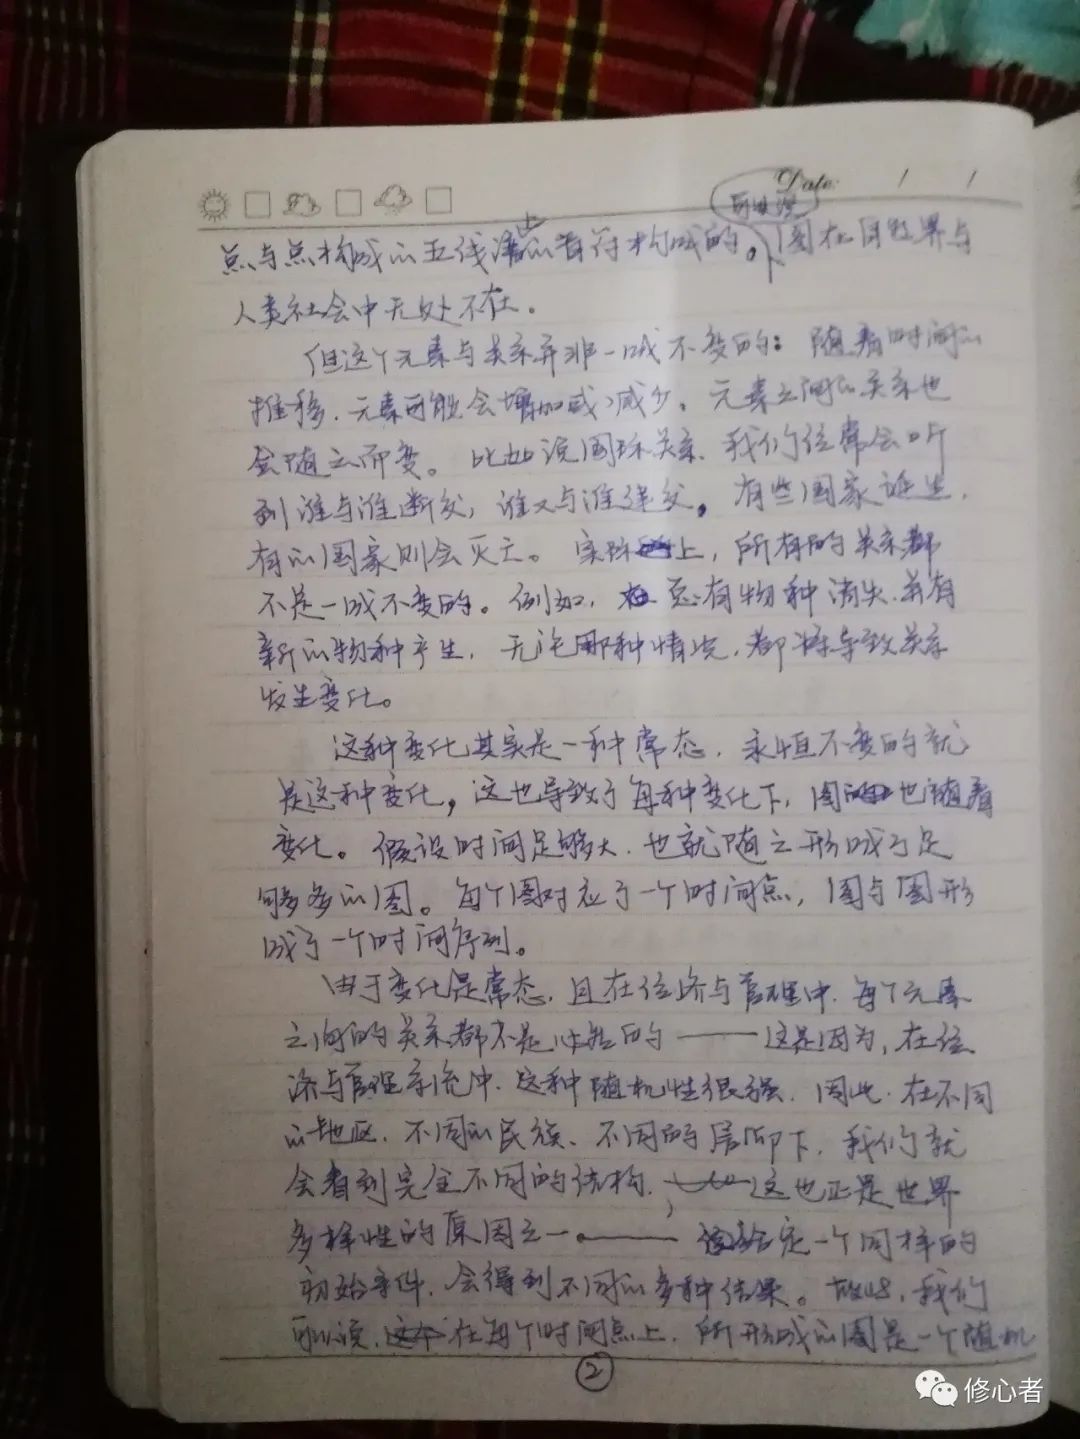 Date: / /
可以说
点与点构成的五线谱上的音符构成的。图在自然界与
人类社会中无处不在。
但这个元素与关系并非一成不变的：随着时间的
推移，元素可能会增加或减少，元素之间的关系也
会随之而变。比如说国际关系，我们经常会听
到谁与谁断交，谁又与谁建交，有些国家诞生，
有的国家则会灭亡。实际上，所有的关系都
不是一成不变的。例如，总有物种消失，并有
新的物种产生，无论哪种情况，都将导致关系
发生变化。
这种变化其实是一种常态，永恒不变的就
是这种变化，这也导致了每种变化下，图也随着
变化。假设时间足够大，也就随之形成了足
够多的图。每个图对应了一个时间点，图与图形
成了一个时间序列。
由于变化是常态，且在经济与管理中，每个元素
之间的关系都不是必然的——这是因为，在经
济与管理系统中，这种随机性很强，因此，在不同
的地区，不同的民族、不同的信仰下，我们就
会看到完全不同的结构，这也正是世界
多样性的原因之一。——给定一个同样的
初始条件，会得到不同的多种结果。故此，我们
可以说，在每个时间点上，所形成的图是一个随机
2
修心者